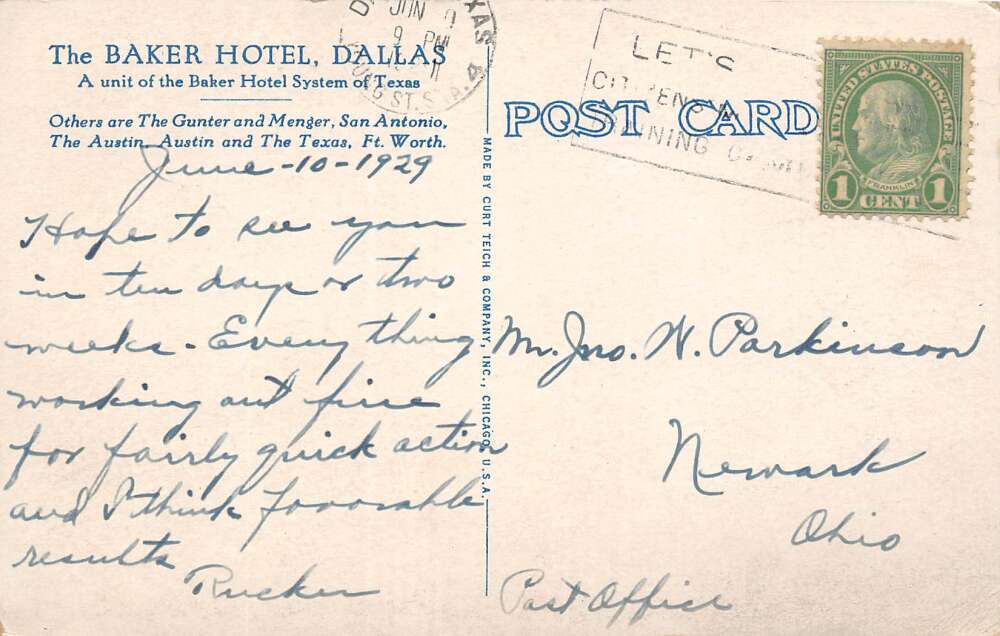 The BAKER HOTEL, DALLAS
A unit of the Baker Hotel System of Texas
Others are The Gunter and Menger, San Antonio,
The Austin, Austin and The Texas, Ft. Worth.
June-10-1929
Hope to see you
in ten days or two
weeks - Every thing
working out fine
for fairly quick action
and I think favorable
results
Rucker
MADE BY CURT TEICH & COMPANY, INC., CHICAGO, U.S.A.
JUN
9 PM
LET'S
POST CARD
UNITED STATES POSTAGE
FRANKLIN
1 CENT 1
Mr. Jno. W. Parkinson
Newark
Ohio
Post Office